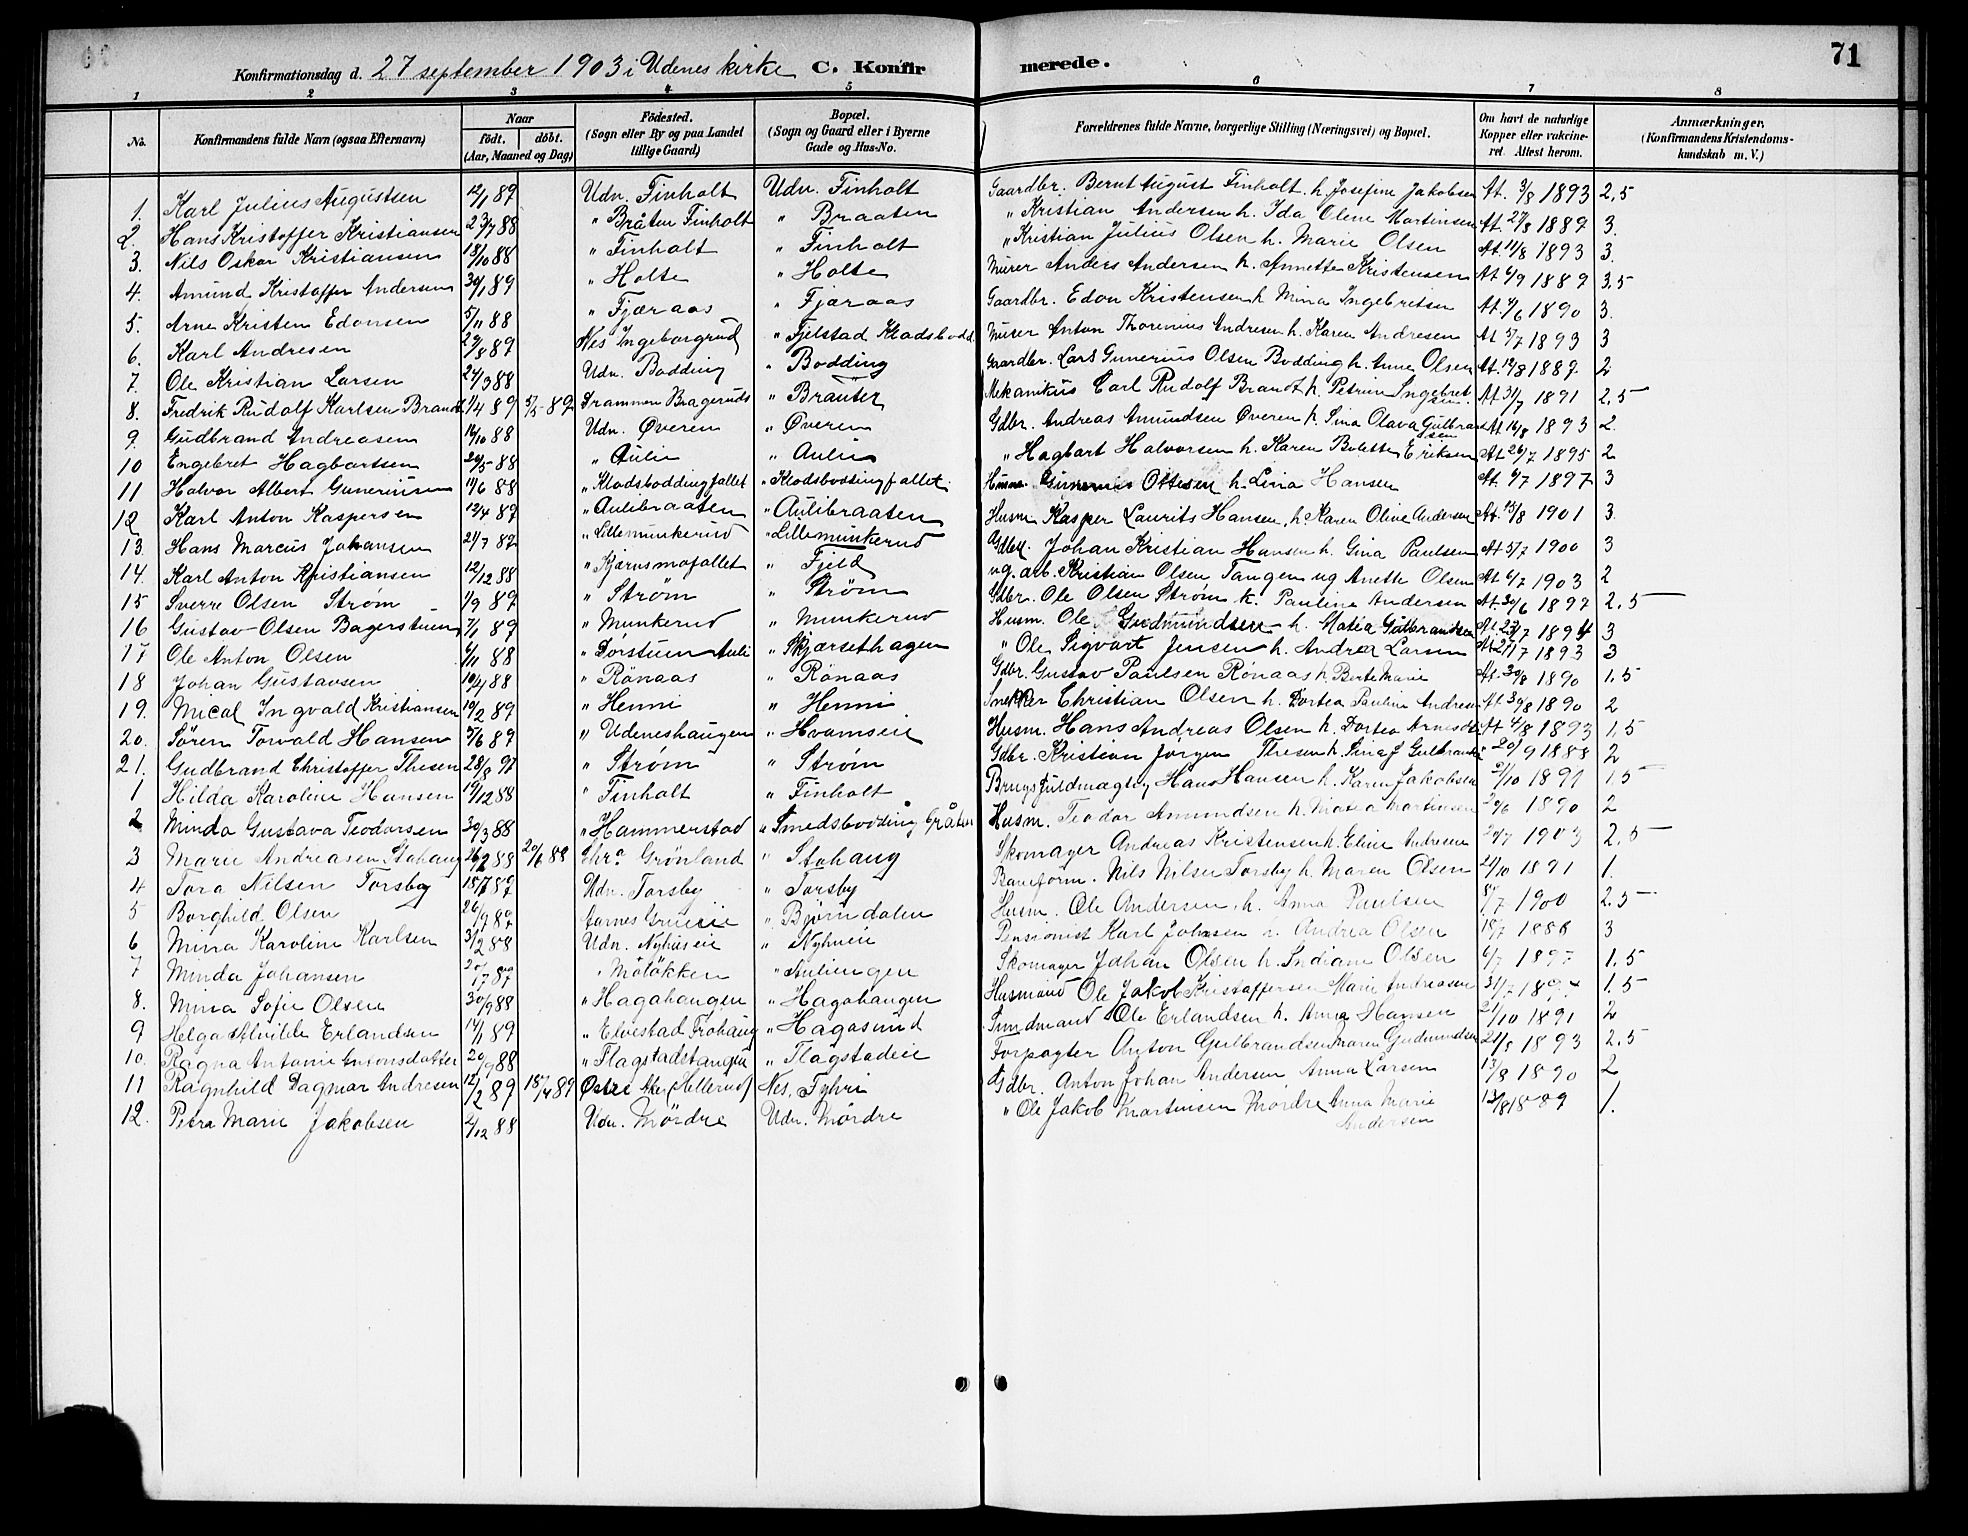 Konfirmationsdag d. 27 september 1903 i Udenes kirke C. Konfirmerede. 71
1 2 3 4 5 6 7 8
No. Konfirmandens fulde Navn (ogsaa Efternavn) Naar født. døbt. (Aar, Maaned og Dag) Fødested. (Sogn eller By og paa Landet tillige Gaard) Bopæl. (Sogn og Gaard eller i Byerne Gade og Hus-No. Forældrenes fulde Navne, borgerlige Stilling (Næringsvei) og Bopæl. Om havt de naturlige Kopper eller vakcineret. Attest herom. Anmærkninger, (Konfirmandens Kristendomskundskab m. V.)
1. Karl Julius Augustsen 12/1 89 Udn. Finholt Udn. Finholt Gaardbr. Bernt August Finholt h. Josefine Jakobsen At. 3/8 1893 2,5
2. Hans Kristoffer Kristiansen 23/7 88 " Bråten Finholt " Braaten " Kristian Andersen h. Ida Oline Martinsen At. 27/8 1889 3.
3. Nils Oskar Kristiansen 18/10 88 " Finholt " Finholt " Kristian Julius Olsen h. Marie Olsen At. 11/8 1893 3.
4. Amund Kristoffer Andersen 30/1 89 " Holte " Holte Murer Anders Andersen h. Annette Kristensen At 6/9 1889 3,5
5. Arne Kristen Edonsen 5/11 88 " Fjæraas " Fjæraas Gaardbr. Edon Kristensen h Mina Ingebretsen At. 9/6 1890 3.
6. Karl Andresen 29/8 89 Nes Ingeborgrud " Fjelstad Kladsbodd. Murer Anton Thorenius Andresen h. Karen Andresen At 5/7 1893 3
7. Ole Kristian Larsen 24/3 88 Udn. Bodding " Bodding Gaardbr. Lars Gunerius Olsen Bodding h. Anne Olsen At. 19/8 1889. 2
8. Fredrik Rudolf Karlsen Brandt 1/4 89 5/5 89 Drammen Bragernes " Brauter Mekanikus Carl Rudolf Brandt h. Petrine Ingebretsen At 31/7 1891 2,5
9. Gudbrand Andreasen 14/10 88 Udn. Øveren " Øveren Gdbr. Andreas Amundsen Øveren h. Sina Olava Gulbrandsen At 14/8 1893 2.
10 Engebret Hagbartsen 24/5 88 " Aulie " Aulie " Hagbart Halvorsen h. Karen Bolette Eriksen At 26/7 1895 2
11 Halvor Albert Guneriusen 14/6 88 " Kladsboddingfallet " Kladsboddingfallet. Husm. Gunerius Ottesen h. Lina Hansen At. 6/7 1897 3
12 Karl Anton Kaspersen 12/4 89 " Aulibraaten " Aulibraaten Husm Kasper Laurits Hansen, h Karen Oline Andersen At. 13/8 1901 3.
13. Hans Marcus Johansen 21/7 89 " Lillemunkerud " Lillemunkerud Johan Kristian Hansen h. Gina Paulsen At 5/7 1900 3
14. Karl Anton Kristiansen 12/12 88 " Kjærnsmofallet " Fjeld ug. arb. Kristian Olsen Tangen ug Anette Olsen At 6/7 1903 2
15 Sverre Olsen Strøm 1/9 89 " Strøm " Strøm Gdbr. Ole Olsen Strøm h. Pauline Andersen At. 30/6 1897 2.5
16 Gustav Olsen Bagerstuen 7/1 89 " Munkerud " Munkerud Husm. Ole Gudmundsen h. Matea Gulbrandsen At 23/7 1894 3
17 Ole Anton Olsen 6/11 88 " Dørstuen Auli " Skjærsethagen " Ole Sigvart Jensen h. Andrea Larsen At 21/7 1893 3
18 Johan Gustavsen 10/4 88 " Rönaas " Rönaas Gdbr. Gustav Paulsen Rønaas h. Berte Marie At. 30/8 1890 1.5
19. Mical Ingvald Kristiansen 19/2 89 " Henni " Henni Snekker Christian Olsen h. Dortea Pauline Andresen At 30/8 1890 2
20. Søren Torvald Hansen 5/6 89 " Udeneshaugen " Hvamseie Husm. Hans Andreas Olsen h. Dortea At 4/8 1893 1,5
21. Gudbrand Christoffer Thesen 28/8 87 " Strøm " Strøm Gdbr. Kristian Jørgen Thesen h. 20/9 1888 2
1 Hilda Karoline Hansen 19/12 88 " Finholt " Finholt Brugsfuldmægtig Hans Hansen h. Karen Jakobsen 21/10 1891 1,5
2 Minda Gustava Teodorsen 30/3 88 " Hammerstad " Smedsbodding Gråten Husm. Teodor Amundsen h. Matea Martinsen 20/6 1890 2
3 Marie Andreasen Stohaug 16/2 88 20/6 88 Chra. Grönland " Stohaug Skomager Andreas Kristensen h. Eline Andresen 20/7 1903 2.5
4 Tora Nilsen Torsby 18/7 89 Udn. Torsby " Torsby Baneform. Nils Nilsen Torsby h. Maren Olsen 21/10 1891 1.
5 Borghild Olsen 26/9 89 " Björndalen Husm. Ole Andersen h. Anna Paulsen 5/7 1900 2.5
6 Mina Karoline Karlsen 3/2 88 Udn. Nyhuseie " Nyhuseie Pensionist Karl Johnsen h. Andrea Olsen 18/7 1888 3
7 Minda Johansen 20/7 89 " Möløkken " Auliengen Skomager Johan Olsen h. Indiane Olsen 6/7 1897 1.5
8. Mina Sofie Olsen 30/9 88 " Hagahaugen " Hagahaugen Husmand Ole Jakob Kristoffersen Marie Andreasen 1.5
9 Helga Alvilde Erlandsen 14/1 89 " Elvestad Frohaug " Hagasund Sundmand Ole Erlandsen h. Anna Hansen 21/10 1891 2
10. Ragna Antonie Antonsdatter 20/9 88 " Flagstadtangen " Flagstadeie Forpagter Anton Gulbrandsen Maren Gudmundsen 21/8 1893 2.5
11 Ragnhild Dagmar Andresen 12/2 89 18/4 89 Østre Aker (Hellerud) Nes, Fyhri Gdbr. Anton Johan Andersen Anna Larsen 13/8 1890 2
12. Petra Marie Jakobsen 2/12 88 Udn. Mördre Udn. Mördre " Ole Jakob Martinsen Mördre Anna Marie Andersen 13/8 1889 1.